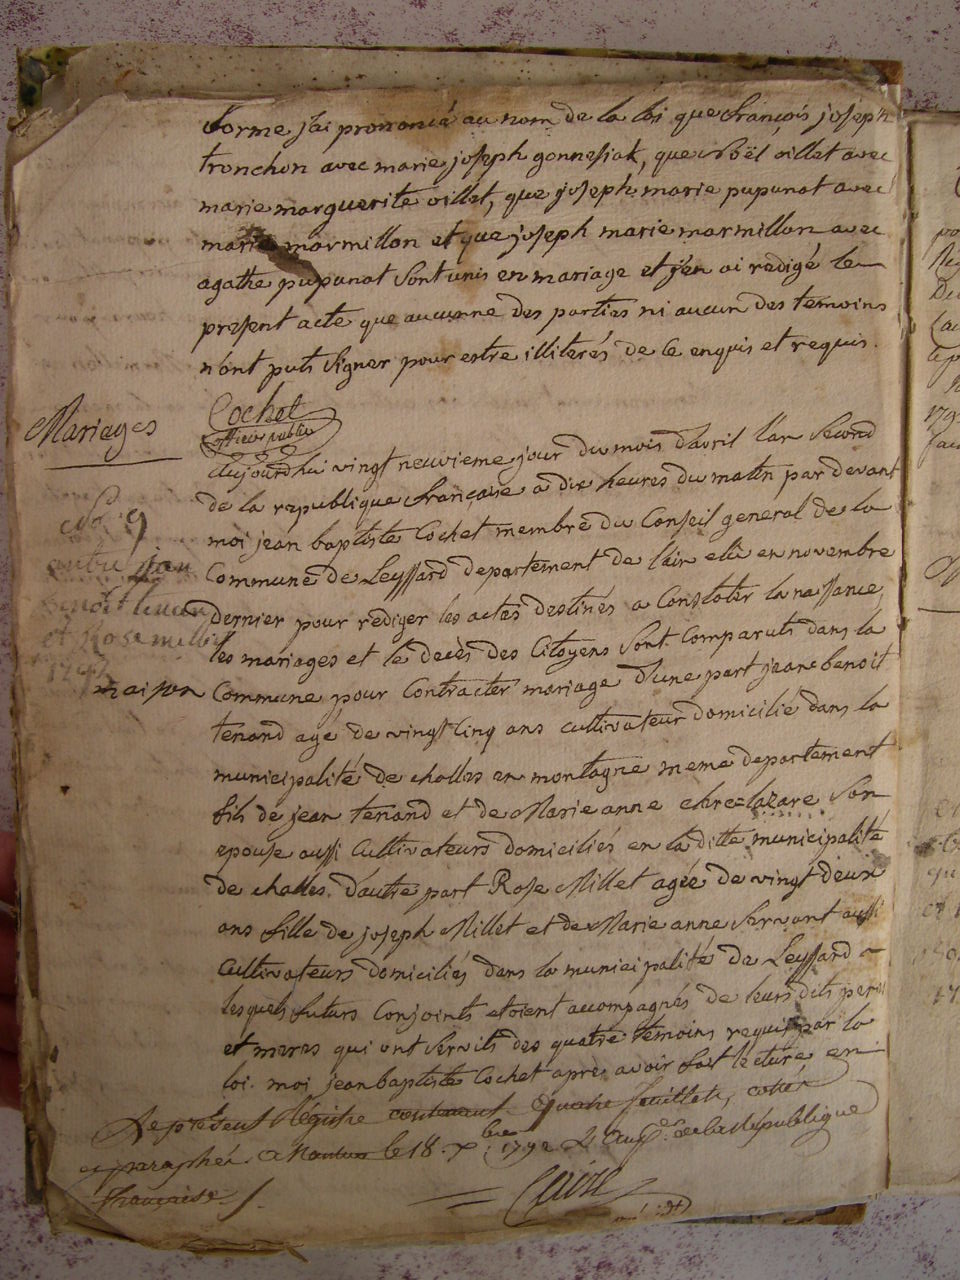 forme j'ai prononcé au nom de la loi que françois joseph
tronchon avec marie joseph gonnesiat, que Noël oillet avec
marie marguerite oillet, que joseph marie pupunat avec
marie marmillon et que joseph marie marmillon avec
agathe pupunat sont unis en mariage et j'en ai redigé le
present acte que aucunne des parties ni aucun des temoins
n'ont puts signer pour estre illiterés de ce enquis et requis.
Cochet
officier public
Mariages
aujourdhui vingt neuvieme jour du mois d'avril l'an second
de la republique française a dix heures du matin par devant
moi jean baptiste Cochet membre du Conseil general de la
Commune de Leyssard departement de l'ain elû en novembre
dernier pour rediger les actes destinés a Constater la naissance,
les mariages et le decès des Citoyens sont Comparuts dans la
maison Commune pour Contracter mariage d'une part jean benoit
tenand agé de vingt Cinq ans cultivateur domicilié dans la
municipalité de challes en montagne meme departement
fils de jean tenand et de Marie anne chre=lazare son
epouse aussi Cultivateurs domiciliés en la ditte municipalité
de challes. d'autre part Rose Millet agée de vingt deux
ans fille de joseph Millet et de Marie anne Servant aussi
Cultivateurs domiciliés dans la municipalité de Leyssard
lesquels futurs Conjoints etoient accompagnés de leurs dits peres
et meres qui ont servits des quatre temoins requis par la
loi. moi jean baptiste Cochet apres avoir fait lecture en
No. 9
entre jean
benoit tenan
et Rose millet
1793
Le present Régistre contenant quatre feuillets, cotté
et paraphé. a Nantua le 18. Xbre 1792 de la République
françoise